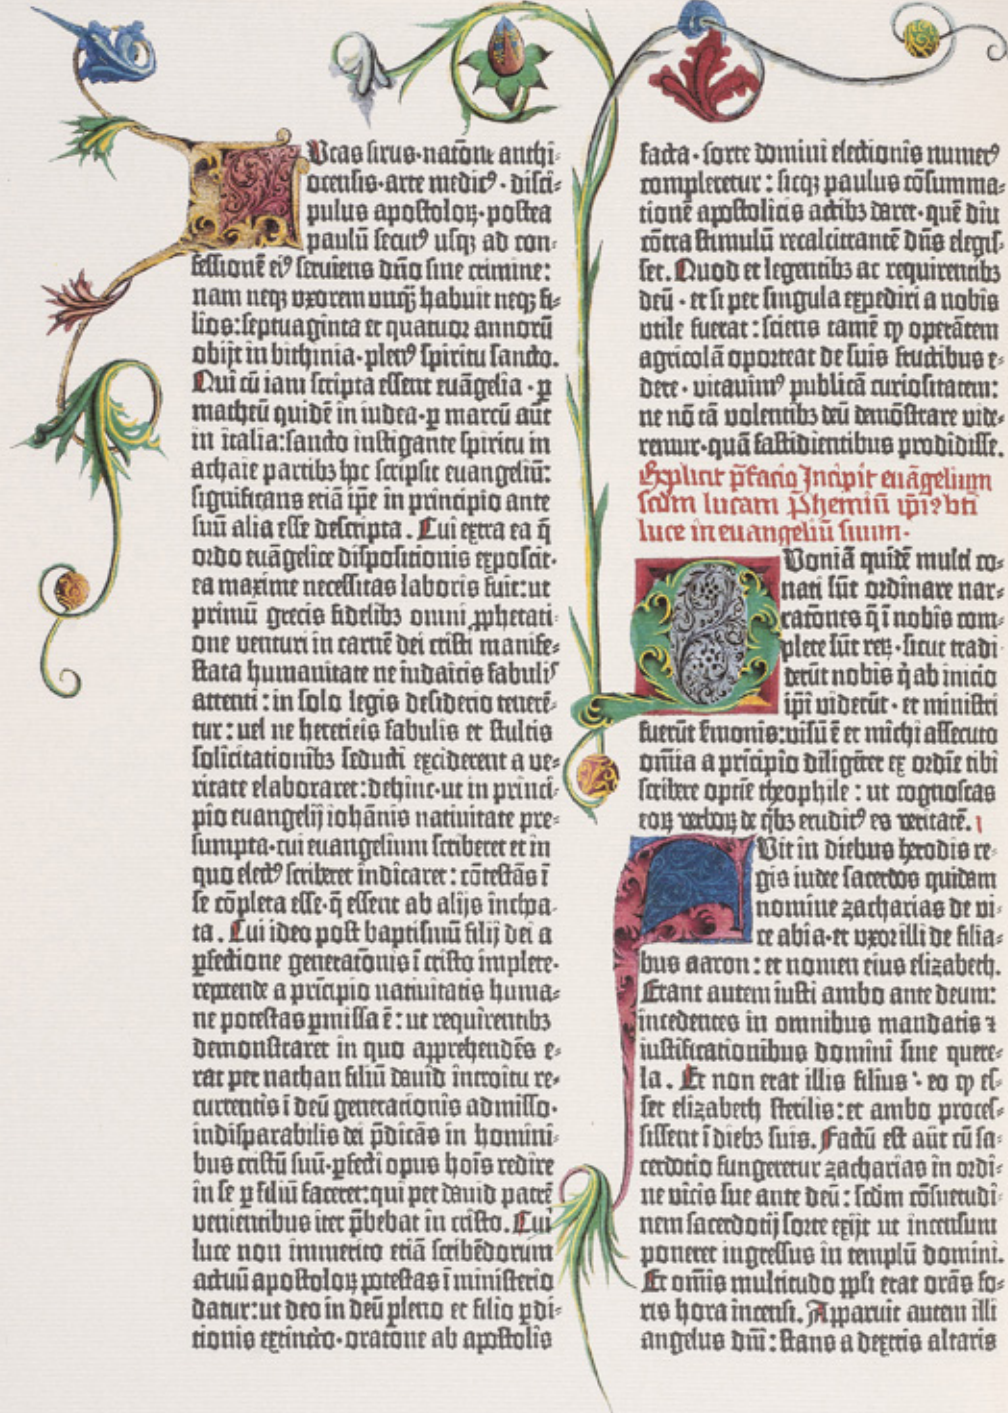 Lucas sirus·natōne anthi⸗
ocensis·arte medicꝰ·disci⸗
pulus apostoloꝝ·postea
paulū secutꝰ usqꝫ ad con⸗
fessionē eiꝰ serviens dño sine crimine:
nam neqꝫ vxorem vnqꝫ̄ habuit neqꝫ fi⸗
lios: septuaginta et quatuor annorū
obijt in bithinia·plenꝰ spiritu sancto.
Qui cū iam scripta essent euāgelia·ꝑ
matheū quidē in iudea·ꝑ marcū aūt
in italia: sancto instigante spiritu in
achaie partibꝫ hoc scripsit euangeliū:
significans etiā ip̄e in principio ante
suū alia esse descripta. Cui extra ea q̄
ordo euāgelice dispositionis exposcit·
ea maxime necessitas laboris fuit: ut
primū grecis fidelibꝫ omni ꝓphetati⸗
one venturi in carnē dei cristi manife⸗
stata humanitate ne iudaicis fabulis
attenti: in solo legis desiderio tenerē⸗
tur: uel ne hereticis fabulis et stultis
solicitationibꝫ seducti exciderent a ve⸗
ritate elaboraret: dehinc·ut in princi⸗
pio euangelij iohānis nativitate pre⸗
sumpta·cui euangelium scriberet et in
quo electꝰ scriberet indicaret: cōtestās ī
se cōpleta esse·q̄ essent ab alijs inchoa⸗
ta. Cui ideo post baptismū filij dei a
ꝑfectione generatōnis ī cristo implete·
repetende a prīcipio natiuitatis huma⸗
ne potestas ꝑmissa ē: ut requirentibꝫ
demonstraret in quo apprehendēs e⸗
rat per nathan filiū dauid introitu re⸗
currentis ī deū generationis admisso·
indisparabilis dei p̄dicās in homini⸗
bus cristū suū·ꝑfecti opus hoīs redire
in se ꝑ filiū faceret: qui per dauid patrē
venientibus iter p̄bebat in cristo. Cui
luce non immerito etiā scribēdorum
actuū apostoloꝝ potestas ī ministerio
datur: ut deo in deū pleno et filio ꝑdi⸗
tionis extincto·oratōne ab apostolis
facta·sorte domini electionis numerꝰ
compleretur: sicqꝫ paulus cōsumma⸗
tionē apostolicis actibꝫ daret·quē diu
cōtra stimulū recalcitrantē dn̄s elegis⸗
set. Quod et legentibꝫ ac requirentibꝫ
deū·et si per singula expediri a nobis
vtile fuerat: sciens tamē ꝙ operātem
agricolā oporteat de suis fructibus e⸗
dere·vitauimꝰ publicā curiositatem:
ne nō tā volentibꝫ deū demōstrare vide⸗
remur·quā fastidientibus prodidisse.
Explicit p̄facio Incipit euāgelium
scdm lucam Phemiū ip̄iꝰ bti
luce in euangeliū suum·
Quoniā quidē multi co⸗
nati sūt ordinare nar⸗
ratōnes q̄ ī nobis com⸗
plete sūt reꝝ·sicut tradi⸗
derūt nobis q̇ ab inicio
ip̄i viderūt·et ministri
fuerūt s̄monis: visū ē et michi assecuto
omīa a prīcipio diligēter ex ordīe tibi
scribere optīe theophile: ut cognoscas
eoꝝ verboꝝ de q̇bꝫ eruditꝰ es veritatē. I
Fuit in diebus herodis re⸗
gis iudee sacerdos quidam
nomine zacharias de vi⸗
ce abia·et vxor illi de filia⸗
bus aaron: et nomen eius elizabeth.
Erant autem iusti ambo ante deum:
incedentes in omnibus mandatis ⁊
iustificationibus domini sine quere⸗
la. Et non erat illis filius· eo ꝙ es⸗
set elizabeth sterilis: et ambo proces⸗
sissent ī diebꝫ suis. Factū est aūt cū sa⸗
cerdotio fungeretur zacharias in ordi⸗
ne vicis sue ante deū: scdm cōsuetudi⸗
nem sacerdotij sorte exijt ut incensum
poneret ingressus in templū domini.
Et omīs multitudo ppl̄i erat orās fo⸗
ris hora incensi. Apparuit autem illi
angelus dn̄i: stans a dextris altaris